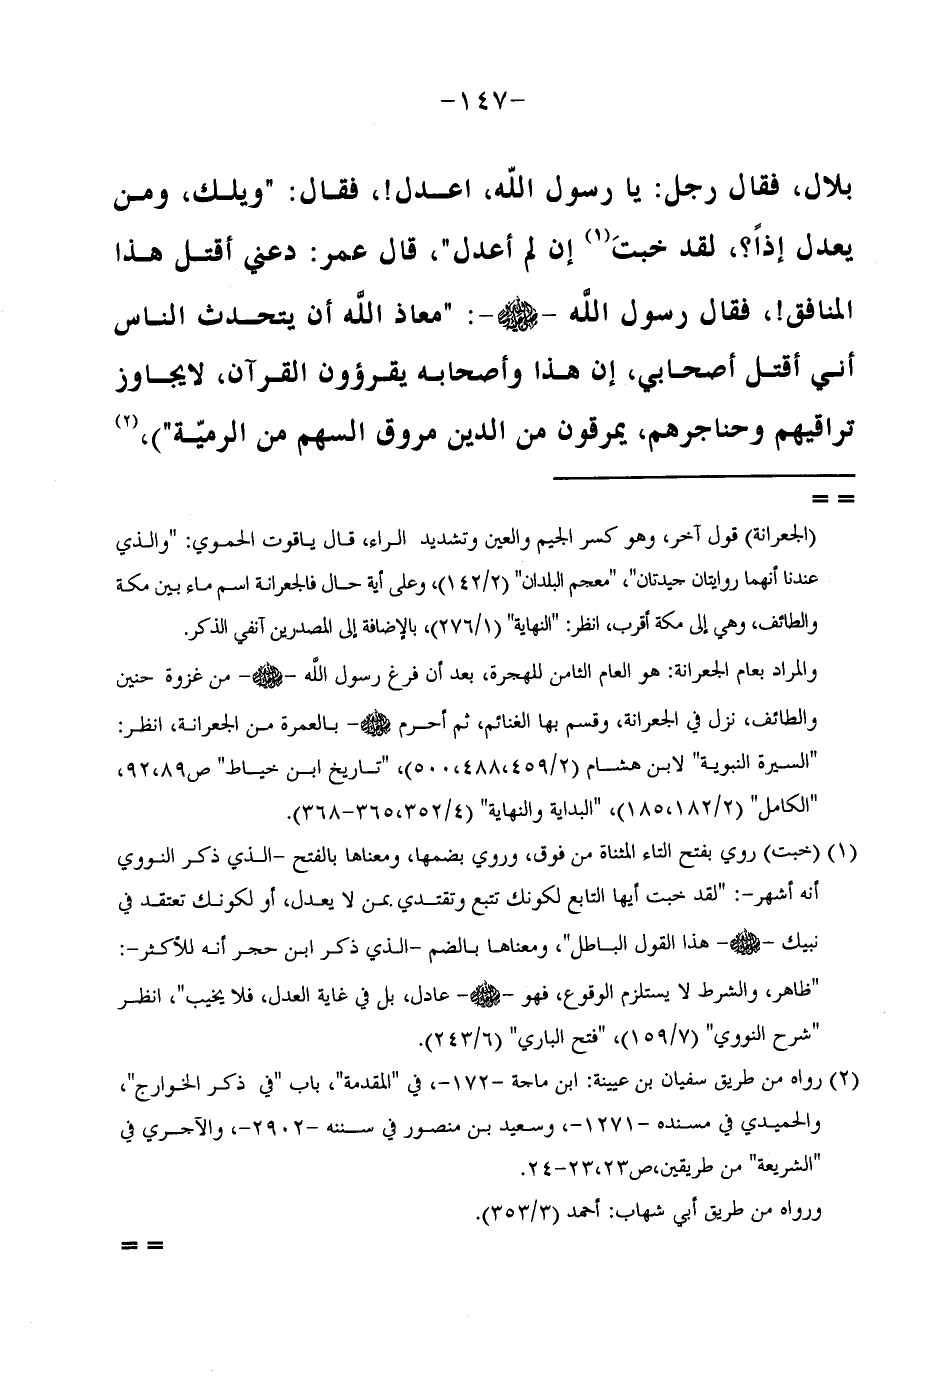 -١٤٧-
بلال، فقال رجل: يا رسول الله، اعـــدل!، فقـال: "ويلـك، ومـن
يعدل إذاً؟، لقد خبتَ(١) إن لم أعدل"، قال عمر: دعني أقتـل هـذا
المنافق!، فقال رسول الله -ﷺ-: "معاذ الله أن يتحـدث النـاس
أنـي أقتـل أصحـابي، إن هـذا وأصحابـه يقـرؤون القـرآن، لايجـاوز
تراقيهم وحناجرهم، يمرقون من الدين مروق السهم من الرميّـة")،(٢)
= =
(الجعرانة) قول آخر، وهو كسر الجيم والعين وتشديد الـراء، قـال يـاقوت الحمـوي: "والـذي
عندنا أنهما روايتان جيدتان"، "معجم البلدان" (١٤٢/٢)، وعلى أية حـال فالجعرانـة اسـم مـاء بـين مكـة
والطائف، وهي إلى مكة أقرب، انظر: "النهاية" (٢٧٦/١)، بالإضافة إلى المصدرين آنفي الذكر.
والمراد بعام الجعرانة: هو العام الثامن للهجرة، بعد أن فرغ رسول الله -ﷺ- من غزوة حنين
والطائف، نزل في الجعرانة، وقسم بها الغنائم، ثم أحـرم ﷺ- بـالعمرة مـن الجعرانـة، انظـر:
"السـيرة النبويـة" لابـن هشـام (٤٥٩/٢،٤٨٨،٥٠٠)، "تـاريخ ابـن خيـاط" ص٨٩،٩٢،
"الكامل" (١٨٢/٢،١٨٥)، "البداية والنهاية" (٣٥٢/٤،٣٦٥-٣٦٨).
(١) (خبت) روي بفتح التاء المثناة من فوق، وروي بضمها، ومعناها بالفتح -الـذي ذكـر النـووي
أنه أشهر-: "لقد خبت أيها التابع لكونك تتبع وتقتـدي بمـن لا يعـدل، أو لكونـك تعتقـد في
نبيك -ﷺ- هذا القول البـاطل"، ومعناهـا بـالضم -الـذي ذكـر ابـن حجـر أنـه للأكثـر-:
"ظاهر، والشرط لا يستلزم الوقوع، فهو -ﷺ- عادل، بل في غاية العدل، فلا يخيب"، انظـر
"شرح النووي" (١٥٩/٧)، "فتح الباري" (٢٤٣/٦).
(٢) رواه من طريق سفيان بن عيينة: ابن ماجة -١٧٢-، في "المقدمة"، باب "في ذكـر الخـوارج"،
والحميـدي في مسـنده -١٢٧١-، وسـعيد بـن منصـور في سـننه -٢٩٠٢-، والآجـري في
"الشريعة" من طريقين،ص٢٣،٢٣-٢٤.
ورواه من طريق أبي شهاب: أحمد (٣٥٣/٣).
= =